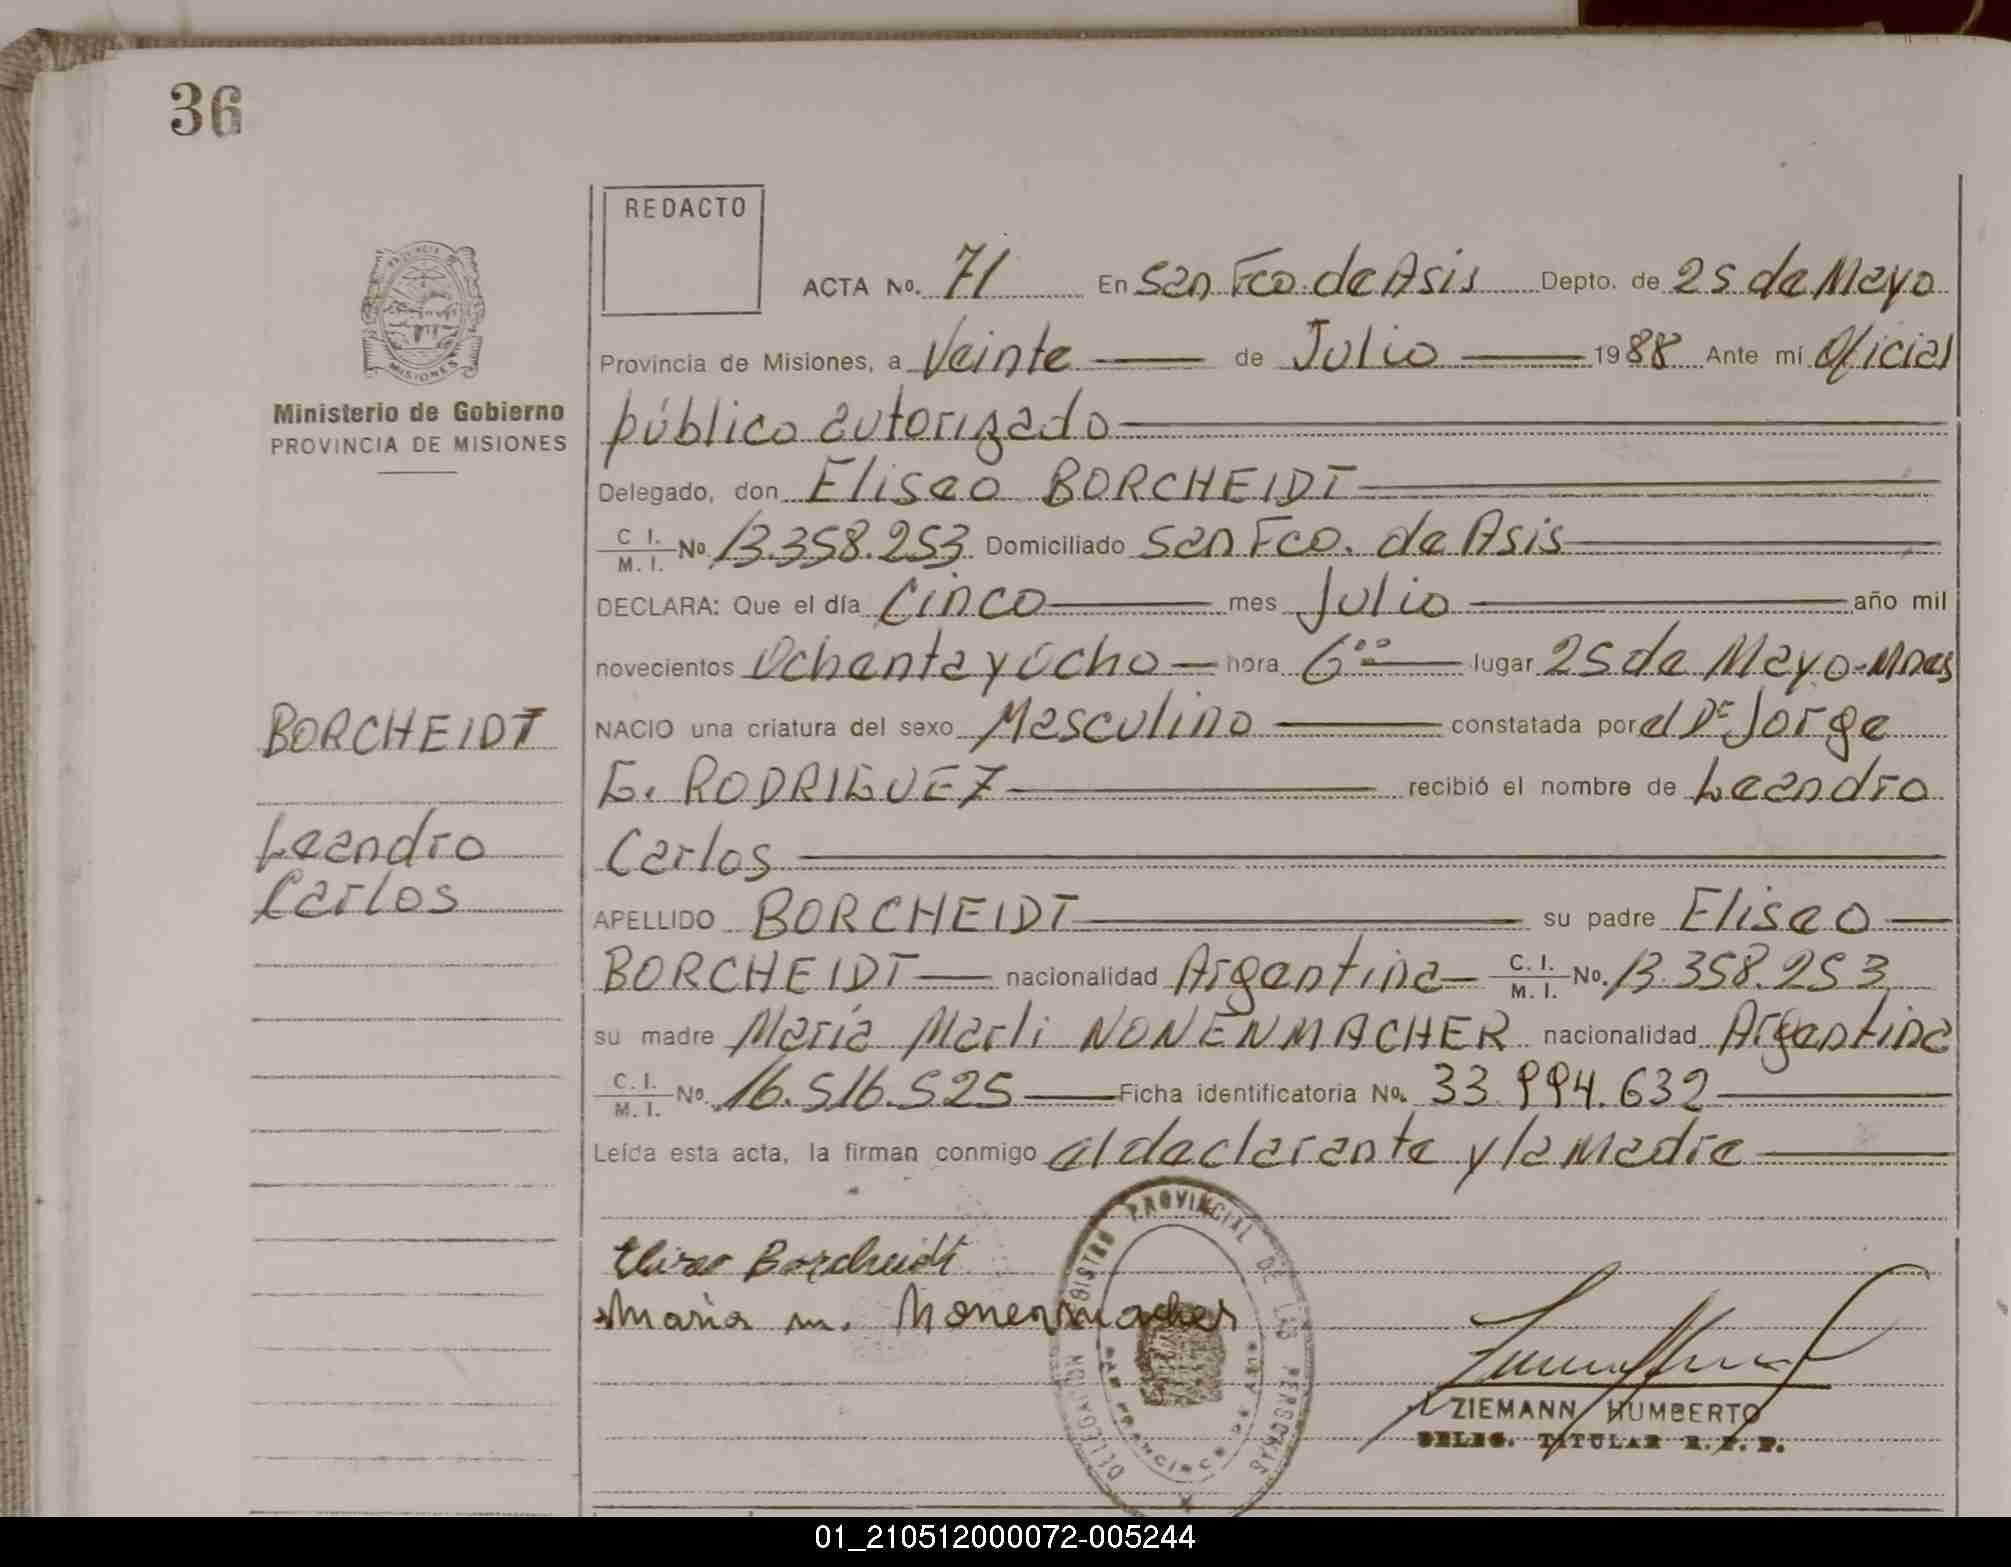 36
REDACTO
ACTA No. 71 En San Fco. de Asis Depto. de 25 de Mayo
Provincia de Misiones, a Veinte de Julio 1988 Ante mí Oficial
público autorizado
Delegado, don Eliseo BORCHEIDT
C. I. M. I. No. 13.358.253 Domiciliado San Fco. de Asis
DECLARA: Que el día Cinco mes Julio año mil
novecientos Ochenta y Ocho hora 6°° lugar 25 de Mayo-Mnes
NACIO una criatura del sexo Masculino constatada por el Dr Jorge
G. RODRIGUEZ recibió el nombre de Leandro
Carlos
APELLIDO BORCHEIDT su padre Eliseo
BORCHEIDT nacionalidad Argentina C. I. M. I. No. 13.358.253
su madre María Marli NONENMACHER nacionalidad Argentina
C. I. M. I. No. 16.516.525 Ficha identificatoria No. 33.994.632
Leída esta acta, la firman conmigo el declarante y la Madre
PROVINCIA
MISIONES
Ministerio de Gobierno
PROVINCIA DE MISIONES
BORCHEIDT
Leandro
Carlos
Eliseo Borcheidt
Maria m. Nonenmacher
DELEGACION REGISTRO PROVINCIAL DE LAS PERSONAS
SAN FRANCISCO DE ASIS
ZIEMANN HUMBERTO
DELEG. TITULAR R. P. P.
01_210512000072-005244